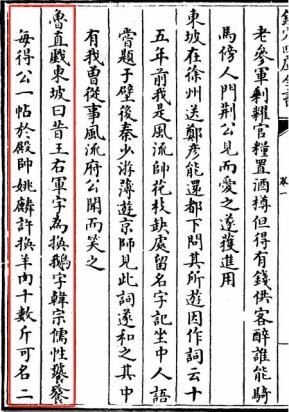 欽定四庫全書
卷一
老參軍剩糶官糧置酒樽但得有錢供客醉誰能騎
馬傍人門荆公見而愛之遂獲進用
東坡在徐州送鄭彦能還都下問其所遊因作詞云十
五年前我是風流帥花枝缺處留名字記坐中人語
嘗題于壁後秦少游薄遊京師見此詞遂和之其中
有我曾從事風流府公聞而笑之
魯直戯東坡曰昔王右軍字為換鵝字韓宗儒性饕餮
每得公一帖於殿帥姚麟許換羊肉十數斤可名二